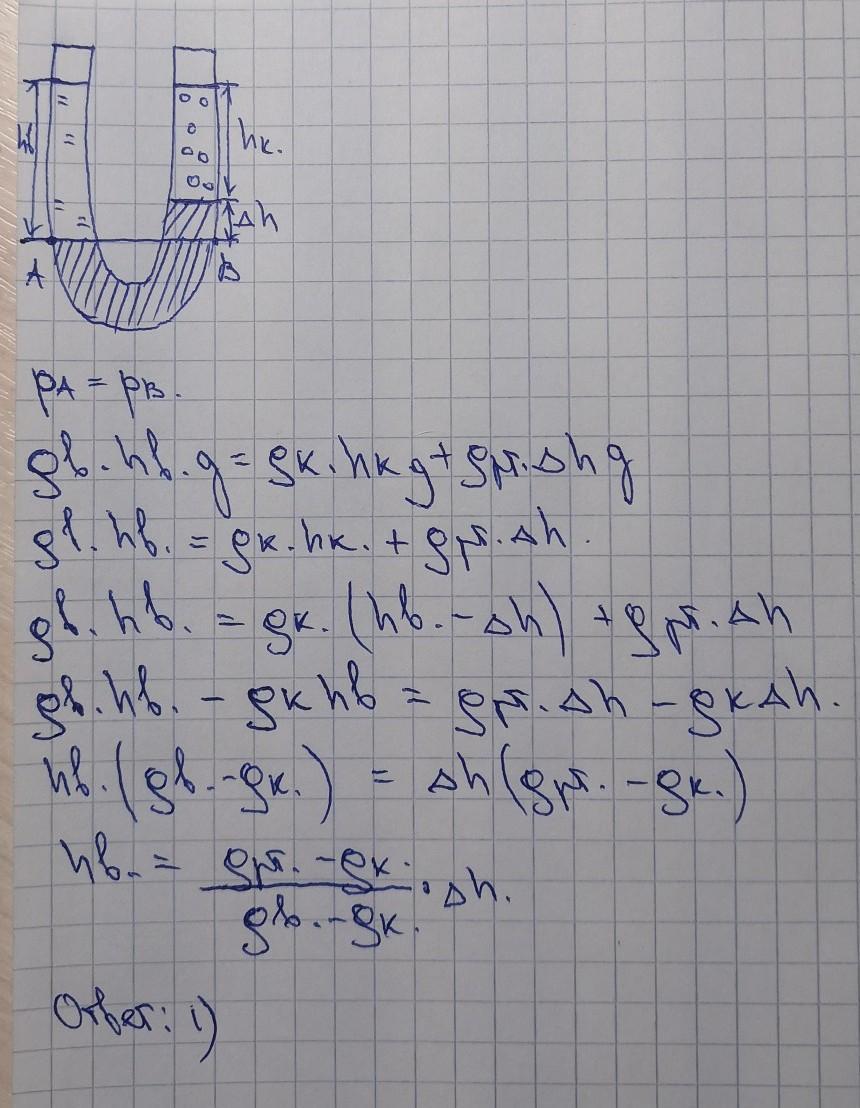 hв
hк.
Δh
A
B
pA = pB.
ρв. hв. g = ρк. hк g + ρрт. Δh g
ρв. hв. = ρк. hк. + ρрт. Δh.
ρв. hв. = ρк. (hв. - Δh) + ρрт. Δh
ρв. hв. - ρк hв = ρрт. Δh - ρк Δh.
hв. (ρв. - ρк.) = Δh (ρрт. - ρк.)
hв. = ρрт. - ρк. / ρв. - ρк. · Δh.
Ответ: 1)